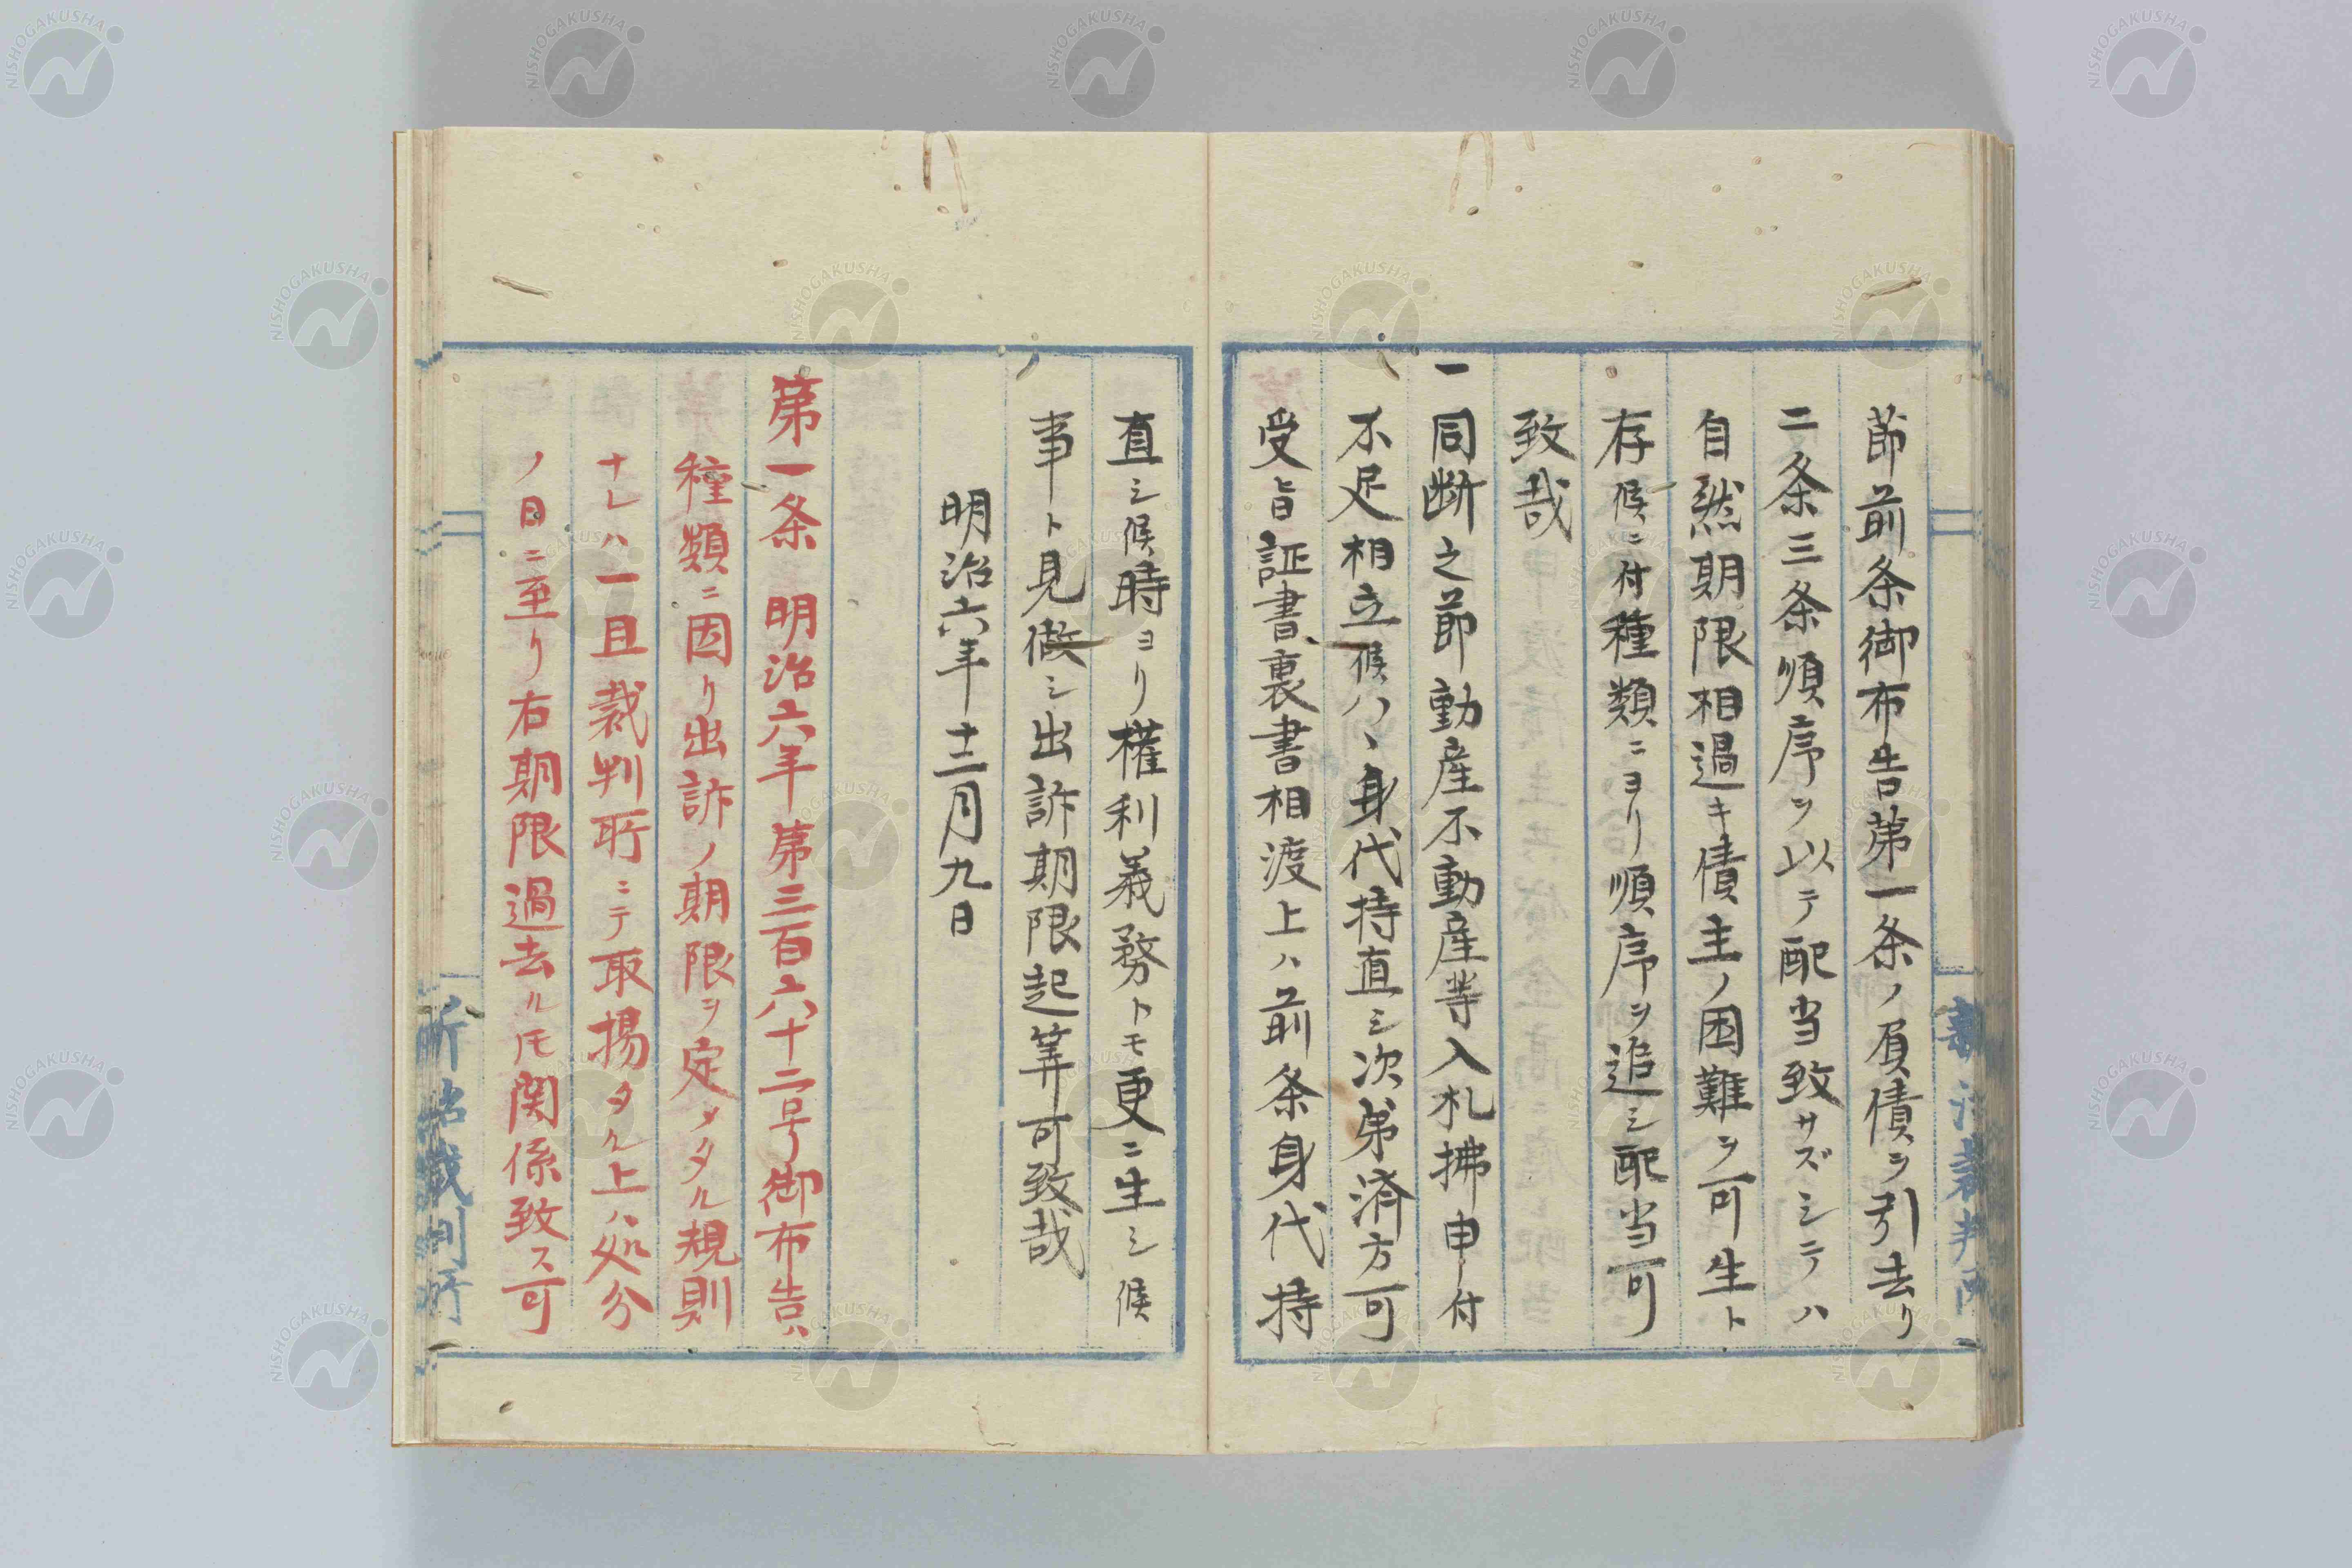 節前条御布告第一条ノ負債ヲ引去リ
二条三条順序ヲ以テ配当致サズシテハ
自然期限相過キ債主ノ困難ヲ可生ト
存候ニ付種類ニヨリ順序ヲ追シ配当可
致哉
一同断之節動産不動産等入札拂申付
不足相立候ハヽ身代持直シ次第済方可
受旨証書裏書相渡上ハ前条身代持
直シ候時ヨリ權利義務トモ更ニ生シ候
事ト見做シ出訴期限起算可致哉
明治六年十二月九日
第一条 明治六年第三百六十二号御布告ハ
種類ニ因リ出訴ノ期限ヲ定メタル規則
ナレハ一旦裁判所ニテ取揚タル上ハ処分
ノ日ニ至リ右期限過去ルモ関係致ス可